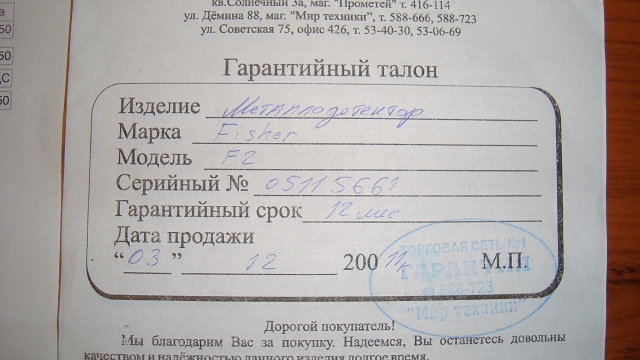 кв.Солнечный 3а, маг. "Прометей" т. 416-114
ул. Дёмина 88, маг. "Мир техники", т. 588-666, 588-723
ул. Советская 75, офис 426, т. 53-40-30, 53-06-69
Гарантийный талон
Изделие Металлодетектор
Марка Fisher
Модель F2
Серийный № 05115661
Гарантийный срок 12 мес
Дата продажи
“03” 12 200 11г М.П.
ТОРГОВАЯ СЕТЬ №1
ГАРАНТИЯ
588-723
"Мир техники"
Дорогой покупатель!
Мы благодарим Вас за покупку. Надеемся, Вы останетесь довольны
качеством и надёжностью данного изделия долгое время.
50
50
ДС
50